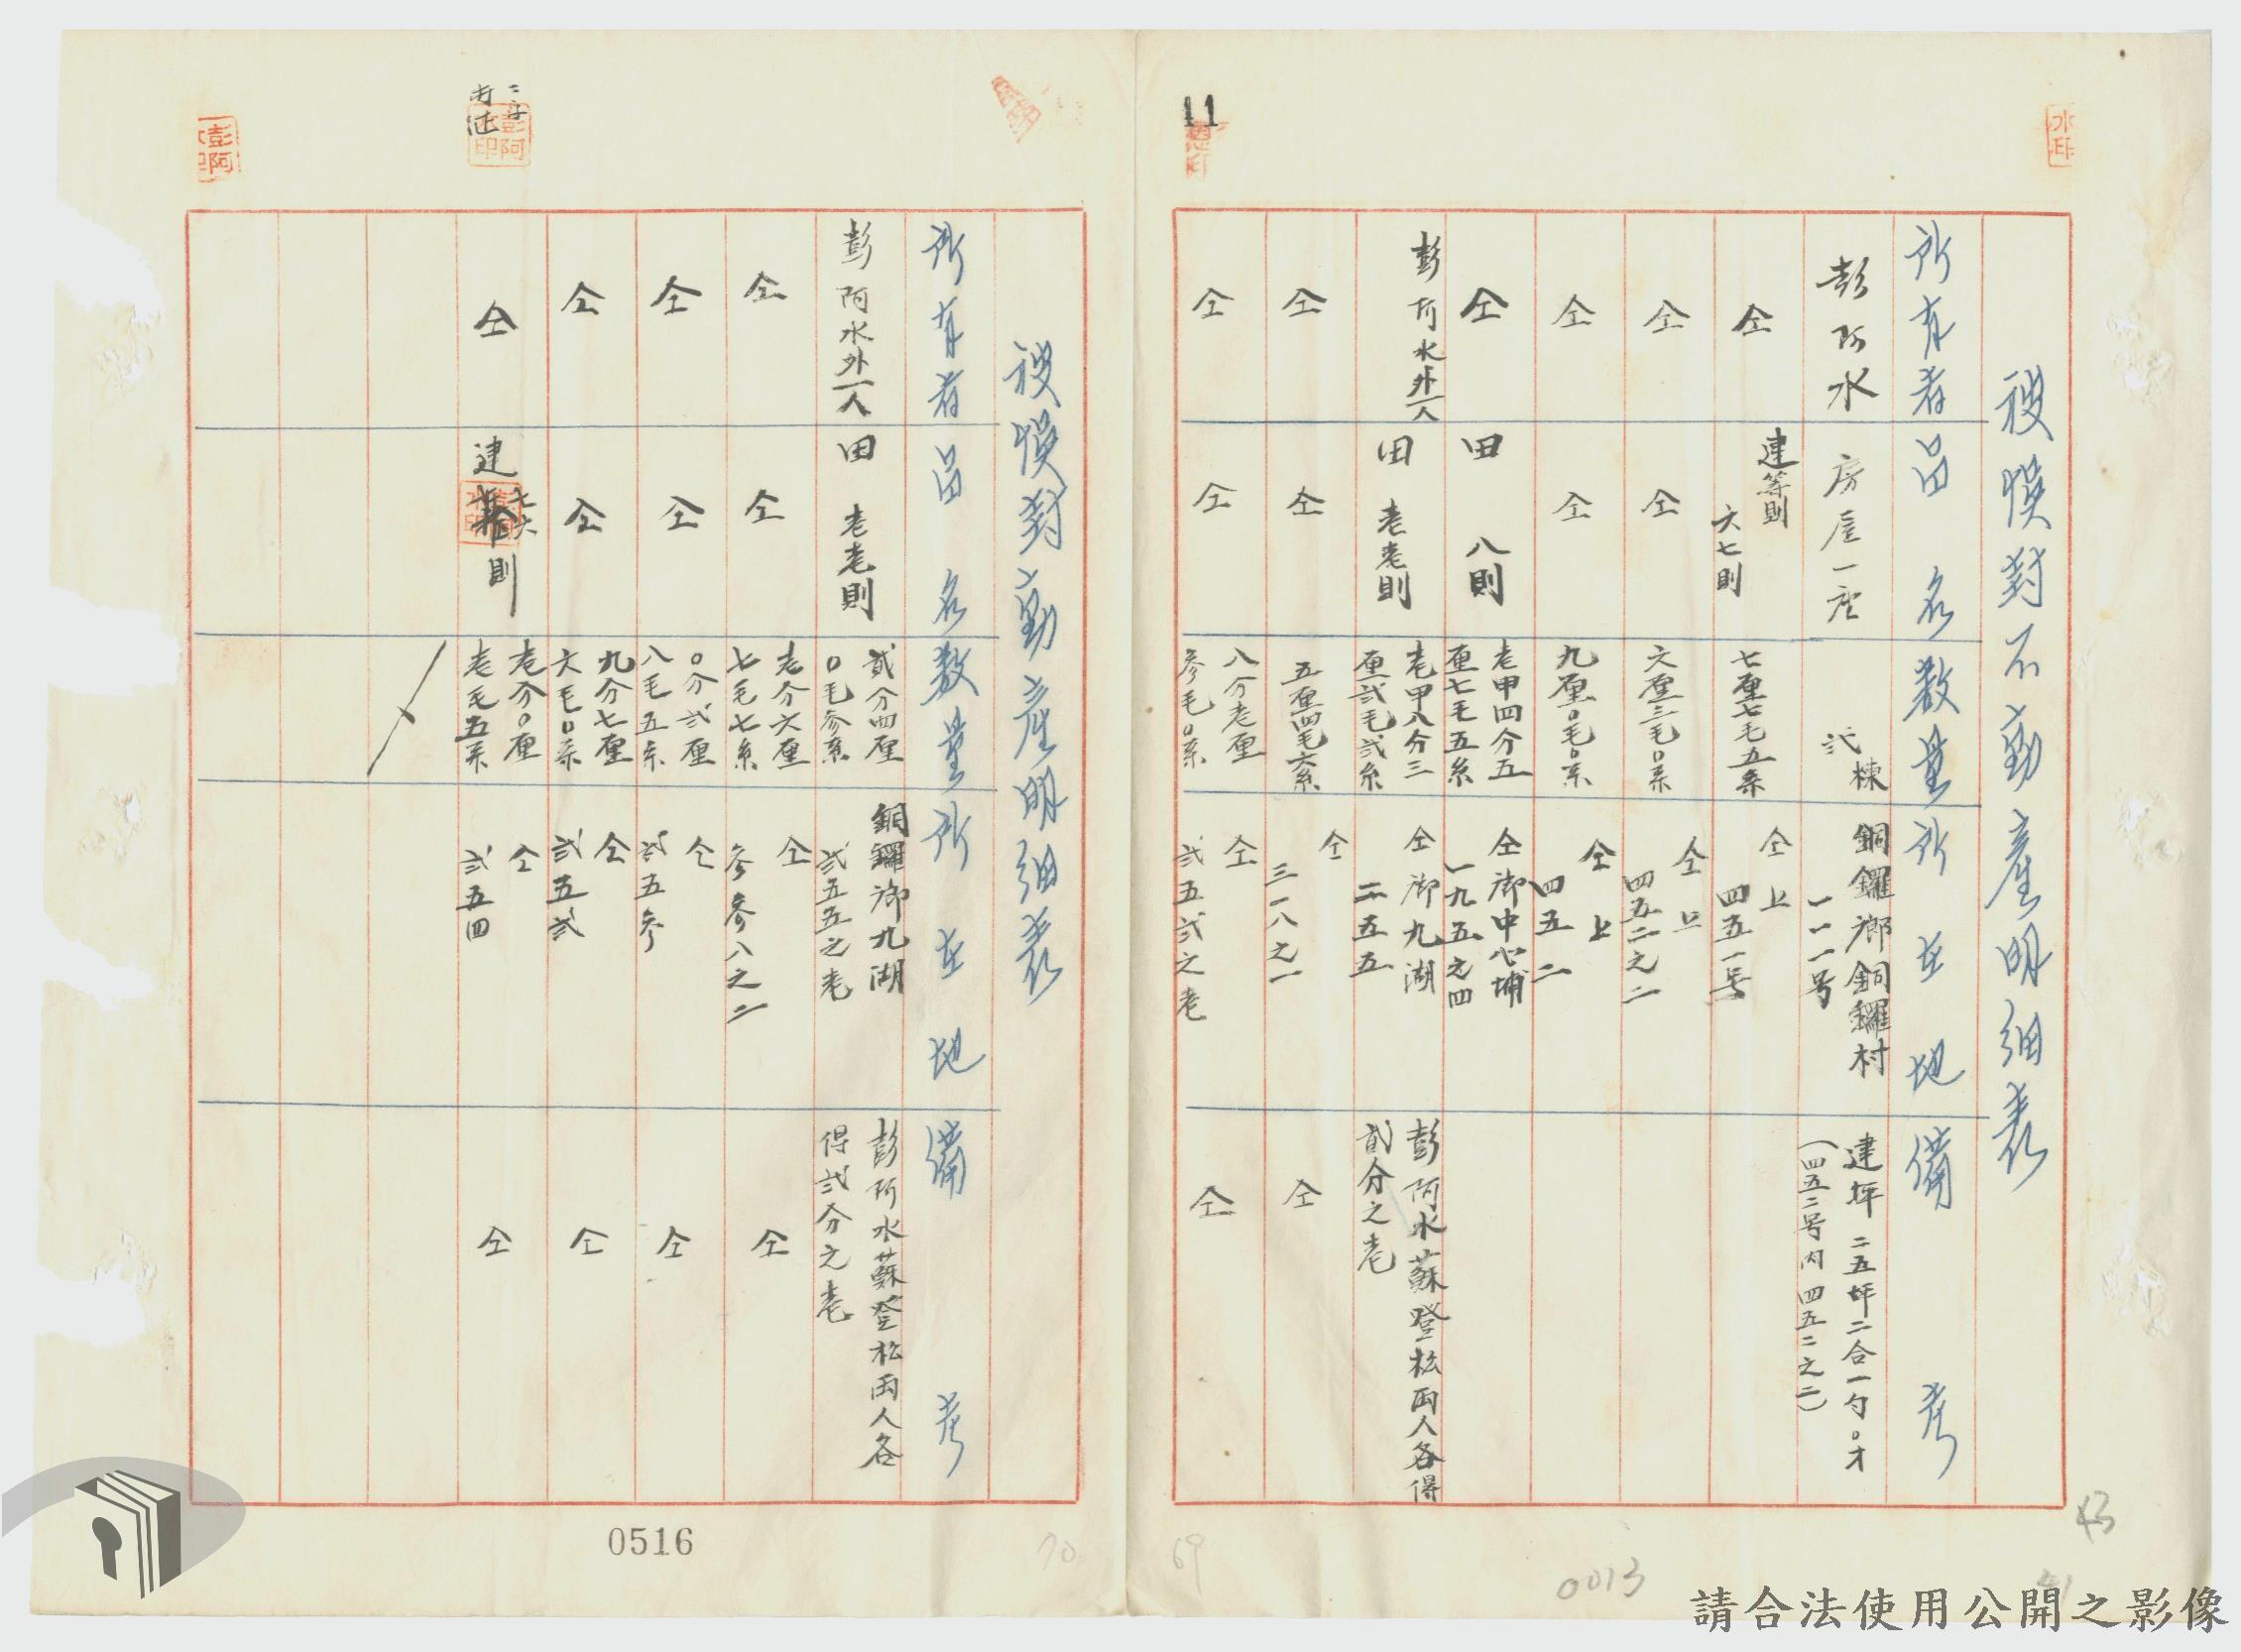 被悞封不動產明細表
所有者 品名 数量 所在地 備考
彭阿水 房屋一座 弍棟 銅鑼鄉銅鑼村一一一号 建坪二五坪二合一勺〇才(四五二号内四五二之二)
仝 建等則六七則 七厘七毛五糸 仝上四五一号
仝 仝 六厘三毛〇糸 仝上四五二之二
仝 仝 九厘〇毛〇糸 仝上四五二
仝 田八則 壱甲四分五厘七毛五糸 仝鄉中心埔一九五之四
彭阿水外一人 田壱壱則 壱甲八分三厘弍毛弍糸 仝鄉九湖二五五 彭阿水蘇登松両人各得貳分之壱
仝 仝 五厘四毛六糸 仝三一八之一 仝
仝 仝 八分壱厘参毛〇糸 仝弍五弍之壱 仝
11
被悞封動產明細表
所有者 品名 数量 所在地 備考
彭阿水外一人 田壱壱則 貳分四厘〇毛参糸 銅鑼鄉九湖弍五五之壱 彭阿水蘇登松両人各得弍分之壱
仝 仝 壱分六厘七毛七糸 仝参参八之二 仝
仝 仝 〇分弍厘八毛五糸 仝弍五参 仝
仝 仝 九分七厘六毛〇糸 仝弍五弍 仝
仝 建七六則 壱分〇厘壱毛五糸 仝弍五四 仝
二字
0516
70
69
0013
43
請合法使用公開之影像